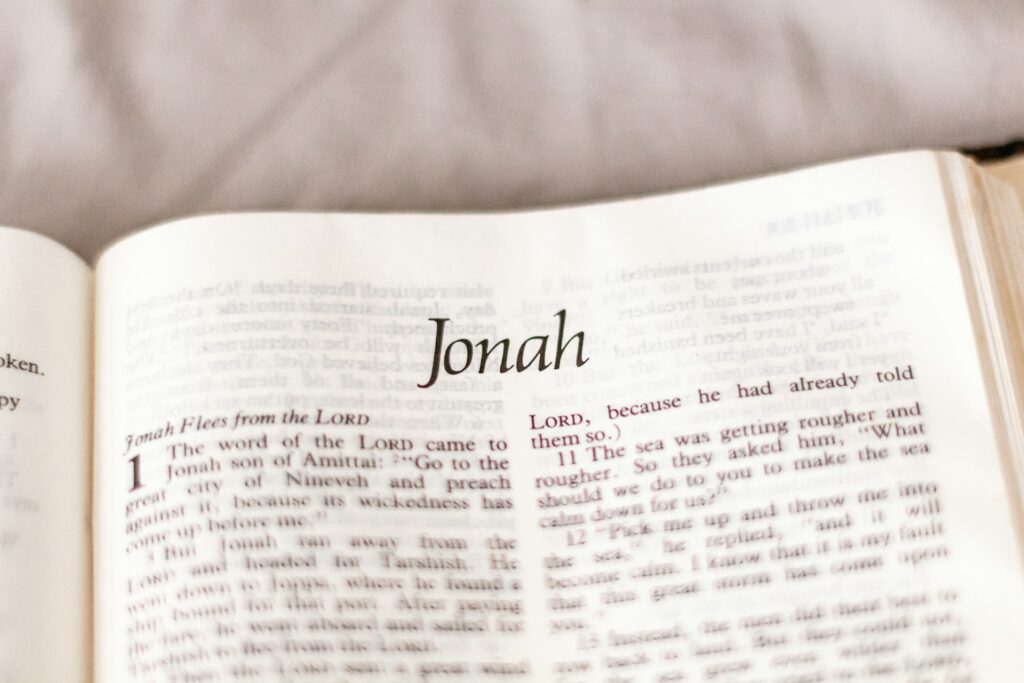 oken.
py
Jonah
Jonah Flees from the LORD
1 The word of the LORD came to
Jonah son of Amittai: 2"Go to the
great city of Nineveh and preach
against it, because its wickedness has
come up before me."
3 But Jonah ran away from the
LORD and headed for Tarshish. He
went down to Joppa, where he found a
ship bound for that port. After paying
the fare, he went aboard and sailed for
Tarshish to flee from the LORD.
Then the LORD sent a great wind
LORD, because he had already told
them so.)
11 The sea was getting rougher and
rougher. So they asked him, "What
should we do to you to make the sea
calm down for us?"
12 "Pick me up and throw me into
the sea," he replied, "and it will
become calm. I know that it is my fault
that this great storm has come upon
you."
13 Instead, the men did their best to
row back to land. But they could not,
the sea grew even wilder than